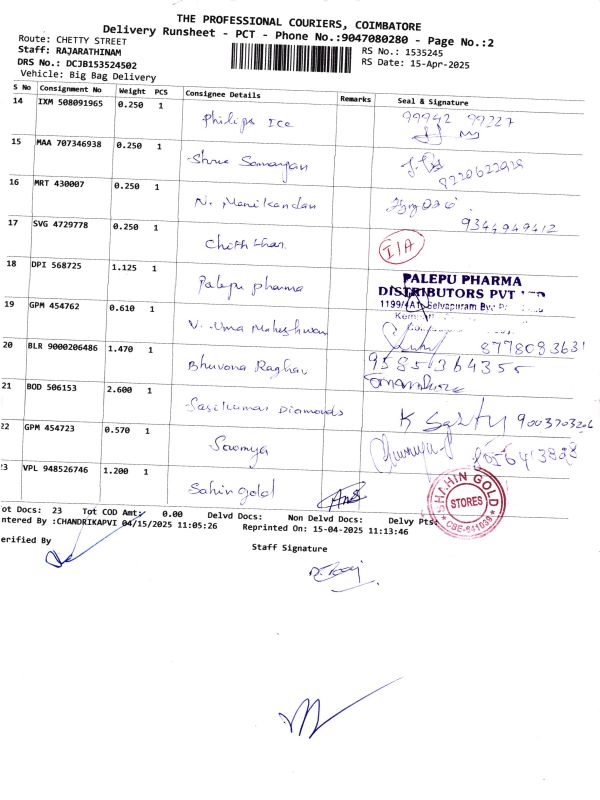 THE PROFESSIONAL COURIERS, COIMBATORE
Delivery Runsheet - PCT - Phone No.:9047080280 - Page No.:2
Route: CHETTY STREET
RS No.: 1535245
Staff: RAJARATHINAM
RS Date: 15-Apr-2025
DRS No.: DCJB153524502
Vehicle: Big Bag Delivery
S No Consignment No Weight PCS Consignee Details Remarks Seal & Signature
14 IXM 508091965 0.250 1 Philips Ice 99942 99227
15 MAA 707346938 0.250 1 Shree 8220622928
16 MRT 430007 0.250 1 N. Manikandan 9344949412
17 SVG 4729778 0.250 1 I/A
18 DPI 568725 1.125 1 Palepu pharma PALEPU PHARMA
DISTRIBUTORS PVT
1199/ Selvapuram
19 GPM 454762 0.610 1 V. Uma Maheshwari 8778083631
20 BLR 9000206486 1.470 1 Bhuvana Raghav 9585364355
21 BOD 506153 2.600 1 Sasikumar Diamonds 9003703206
22 GPM 454723 0.570 1 Sowmya
23 VPL 948526746 1.200 1 Sahin gold SHAHIN GOLD STORES CBE-641039
ot Docs: 23 Tot COD Amt: 0.00 Delvd Docs: Non Delvd Docs: Delvy Pts:
ntered By :CHANDRIKAPVI 04/15/2025 11:05:26 Reprinted On: 15-04-2025 11:13:46
erified By
Staff Signature